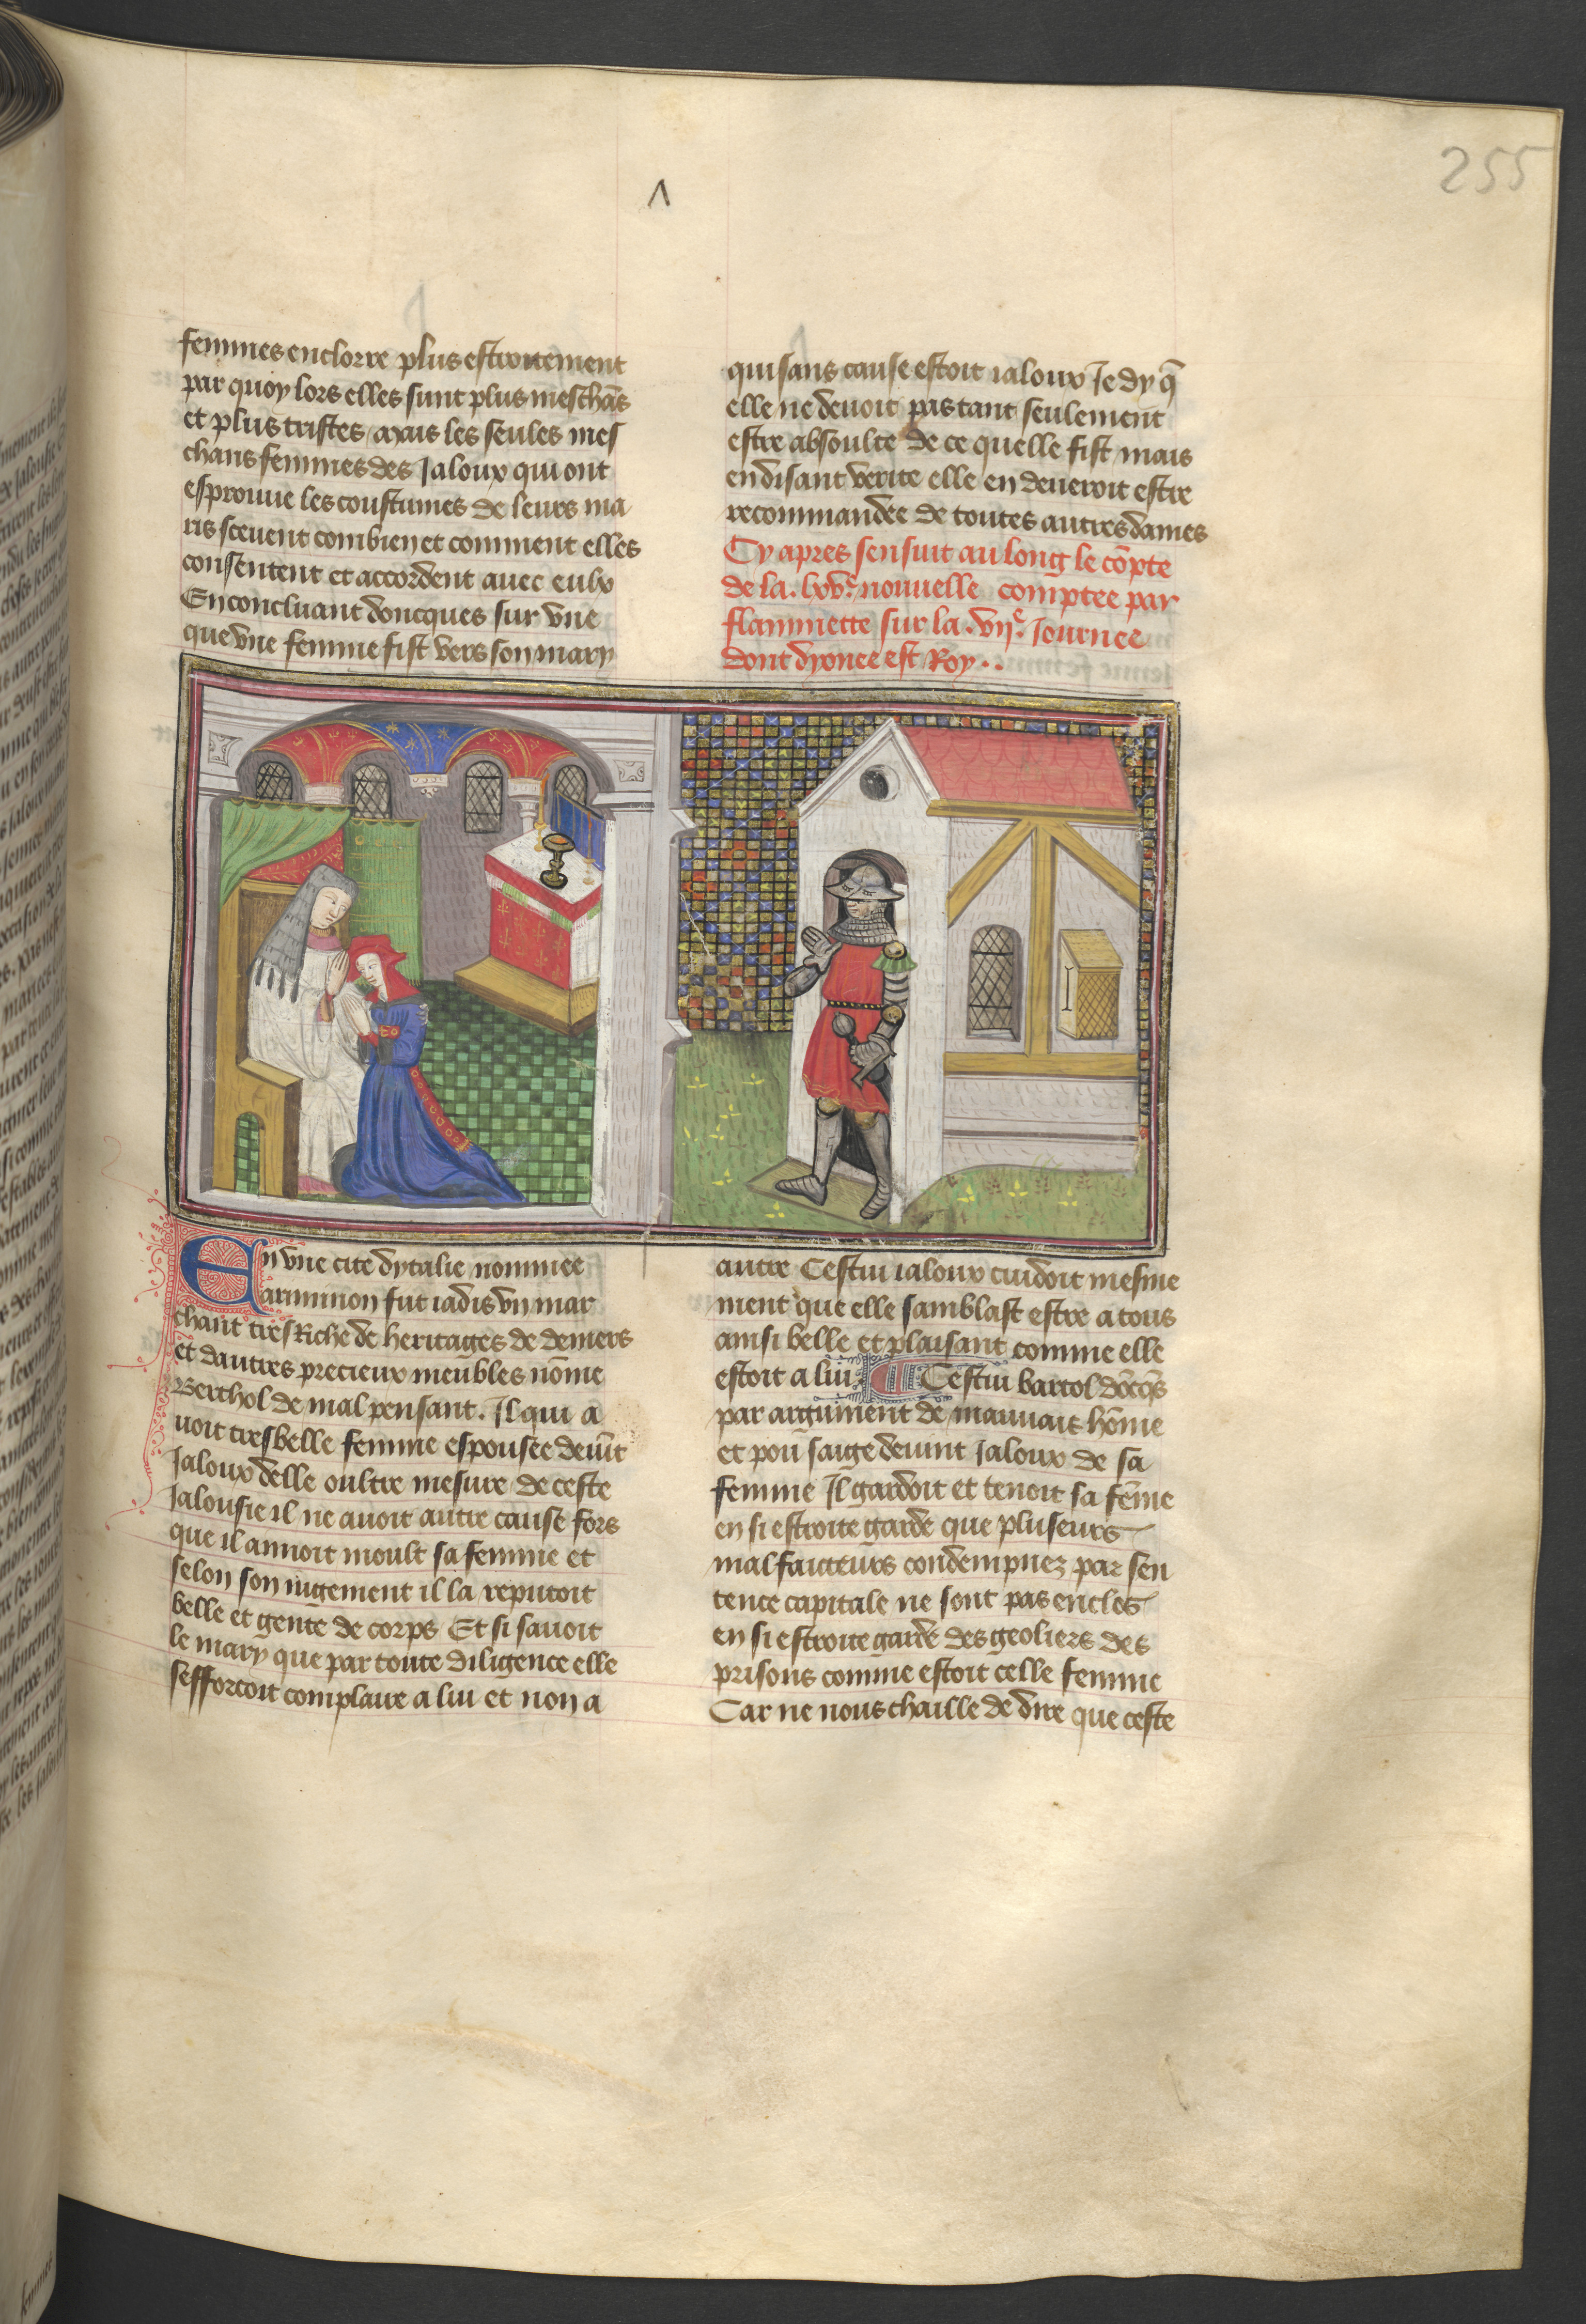 255
femmes enclorre plus estroitement
par quoy lors elles sunt plus meschãs
et plus tristes mais les seules mes
chans femmes des Jaloux qui ont
esprouue les coustumes de leurs ma
ris sceuent combien et comment elles
consentent et accordent auec eulx
En concluant doncques sur vne
que vne femme fist vers son mary
qui sans cause estoit ialoux Je dy q̃
elle ne deuoit pas tant seulement
estre absoulte de ce quelle fist mais
en disant verite elle en deueroit estre
recommandee de toutes autres dames
Cy apres sensuit au long le cõpte
de la .lxvᵉ. nouuelle comptee par
flammette sur la .vijᵉ. Journee
dont dyonee est Roy..
En vne cite dytalie nommee
arminion fut iadis vn mar
chant tres Riche de heritages de deniers
et dautres precieux meubles nõme
Berthol de mal pensant. Il qui a
uoit tresbelle femme espousee deuĩt
Jaloux delle oultre mesure de ceste
Jalousie il ne auoit autre cause fors
que il amoit moult sa femme et
selon son iugement il la reputoit
belle et gente de corps Et si sauoit
le mary que par toute diligence elle
sefforcoit complaire a lui et non a
autre Cestui ialoux cuidoit mesme
ment que elle samblast estre a tous
ainsi belle et plaisant comme elle
estoit a lui. Cestui bartol dõcq̃s
par argument de mauuais hõme
et pou saige deuint Jaloux de sa
femme Il gardoit et tenoit sa fẽme
en si estroite garde que pluseurs
malfaicteurs condempnez par sen
tence capitale ne sont pas enclos
en si estroite garde des geoliers des
prisons comme estoit celle femme
Car ne nous chaille de dire que ceste